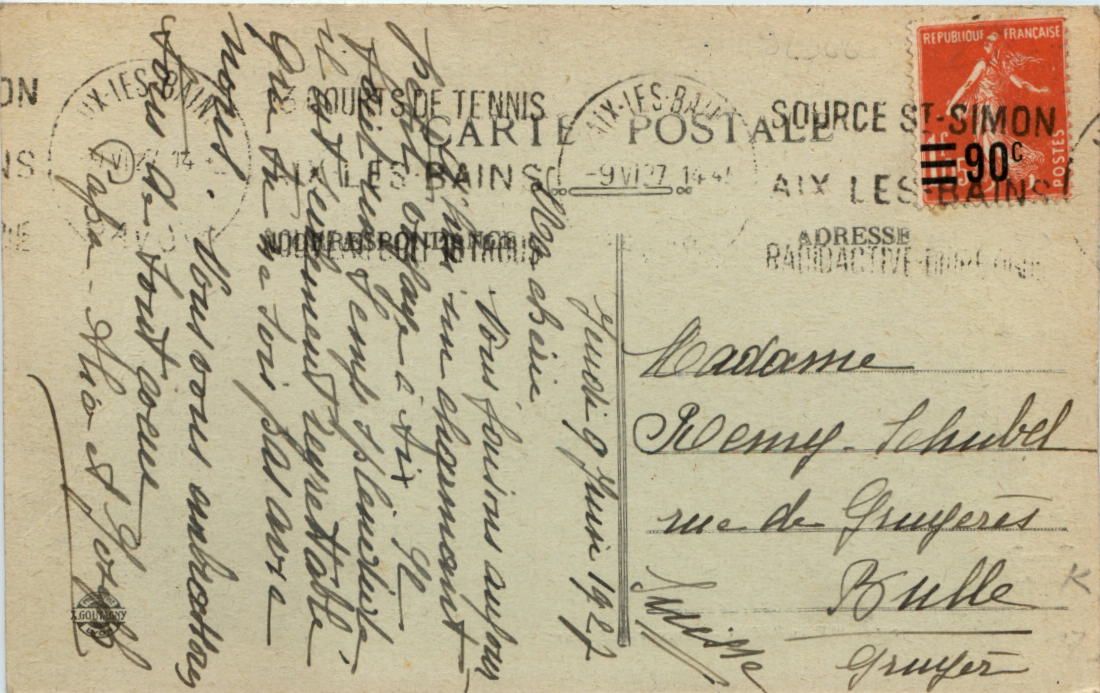 CARTE POSTALE
REPUBLIQUE FRANÇAISE
POSTES
90c
AIX-LES-BAINS
15 COURTS DE TENNIS
AIX LES BAINS
AIX-LES-BAINS
-9 VI 27 14 45
SOURCE ST-SIMON
AIX LES BAINS
RADIOACTIVE
CORRESPONDANCE
ADRESSE
Jeudi 9 Juin 1927
Ma chérie
Nous faisons aujour
d'hui un charmant
petit voyage à Aix. Il
fait un temps splendide
il est seulement regrettable
que tu ne sois pas avec
nous. Nous vous embrassons
tous de tout coeur
Papa -
Madame
Remy-Schubel
rue de Gruyères
Bulle
Gruyèr
Suisse
X. GOUTAGNY
K